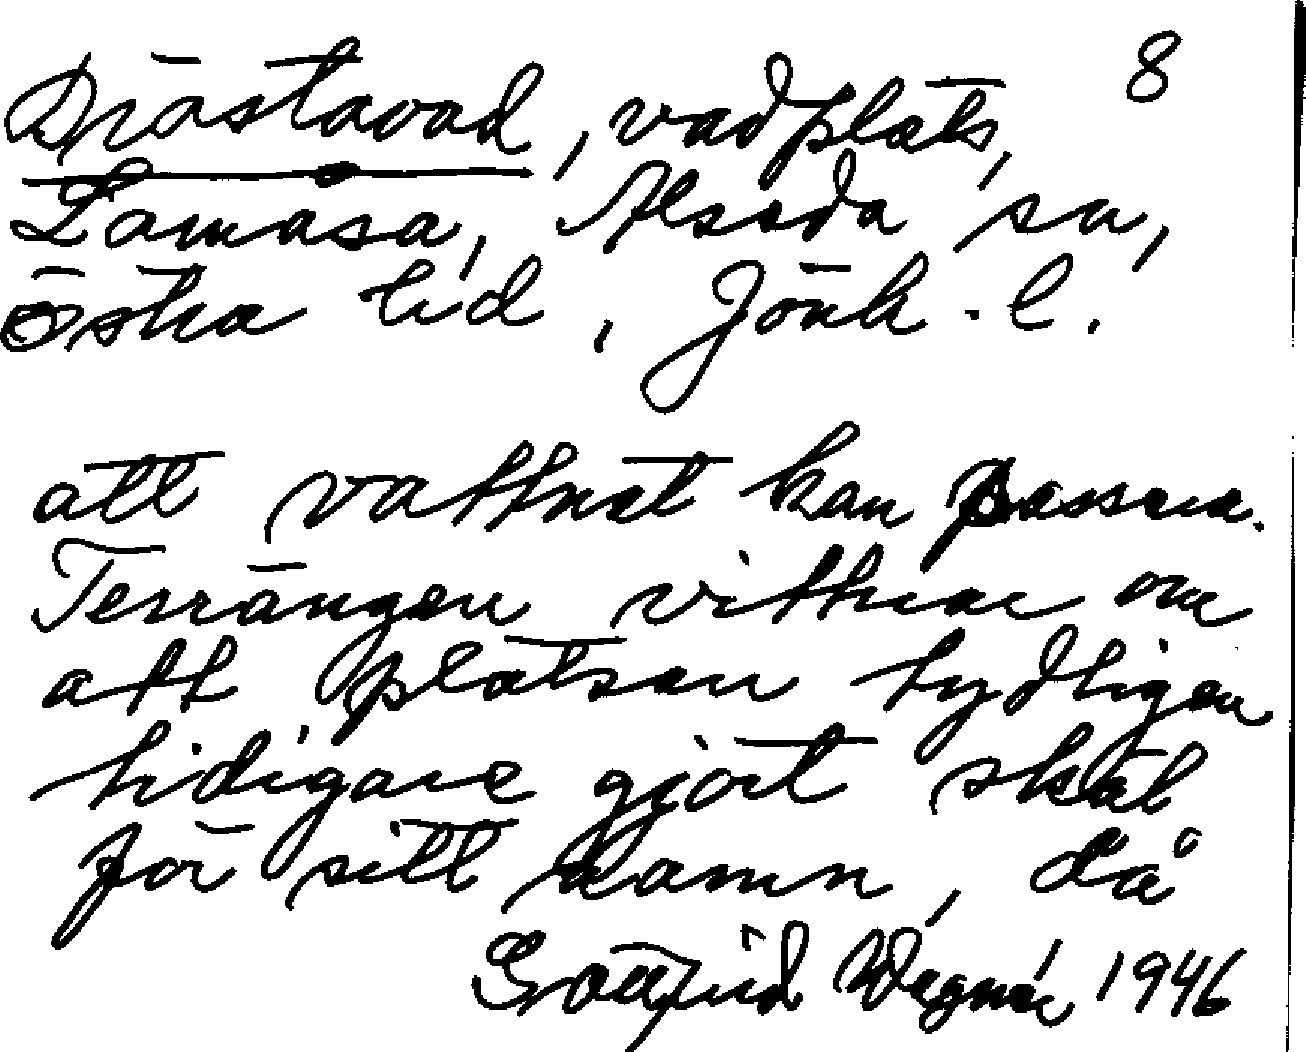 Drästavad, vadplats, 8
Lamåsa, Alseda sn,
Östra hd, Jönk. l.
att vattnet kan passera.
Terrängen vittnar om
att platsen tydligen
tidigare gjort skäl
för sitt namn, då
Gottfrid Wegnér 1946